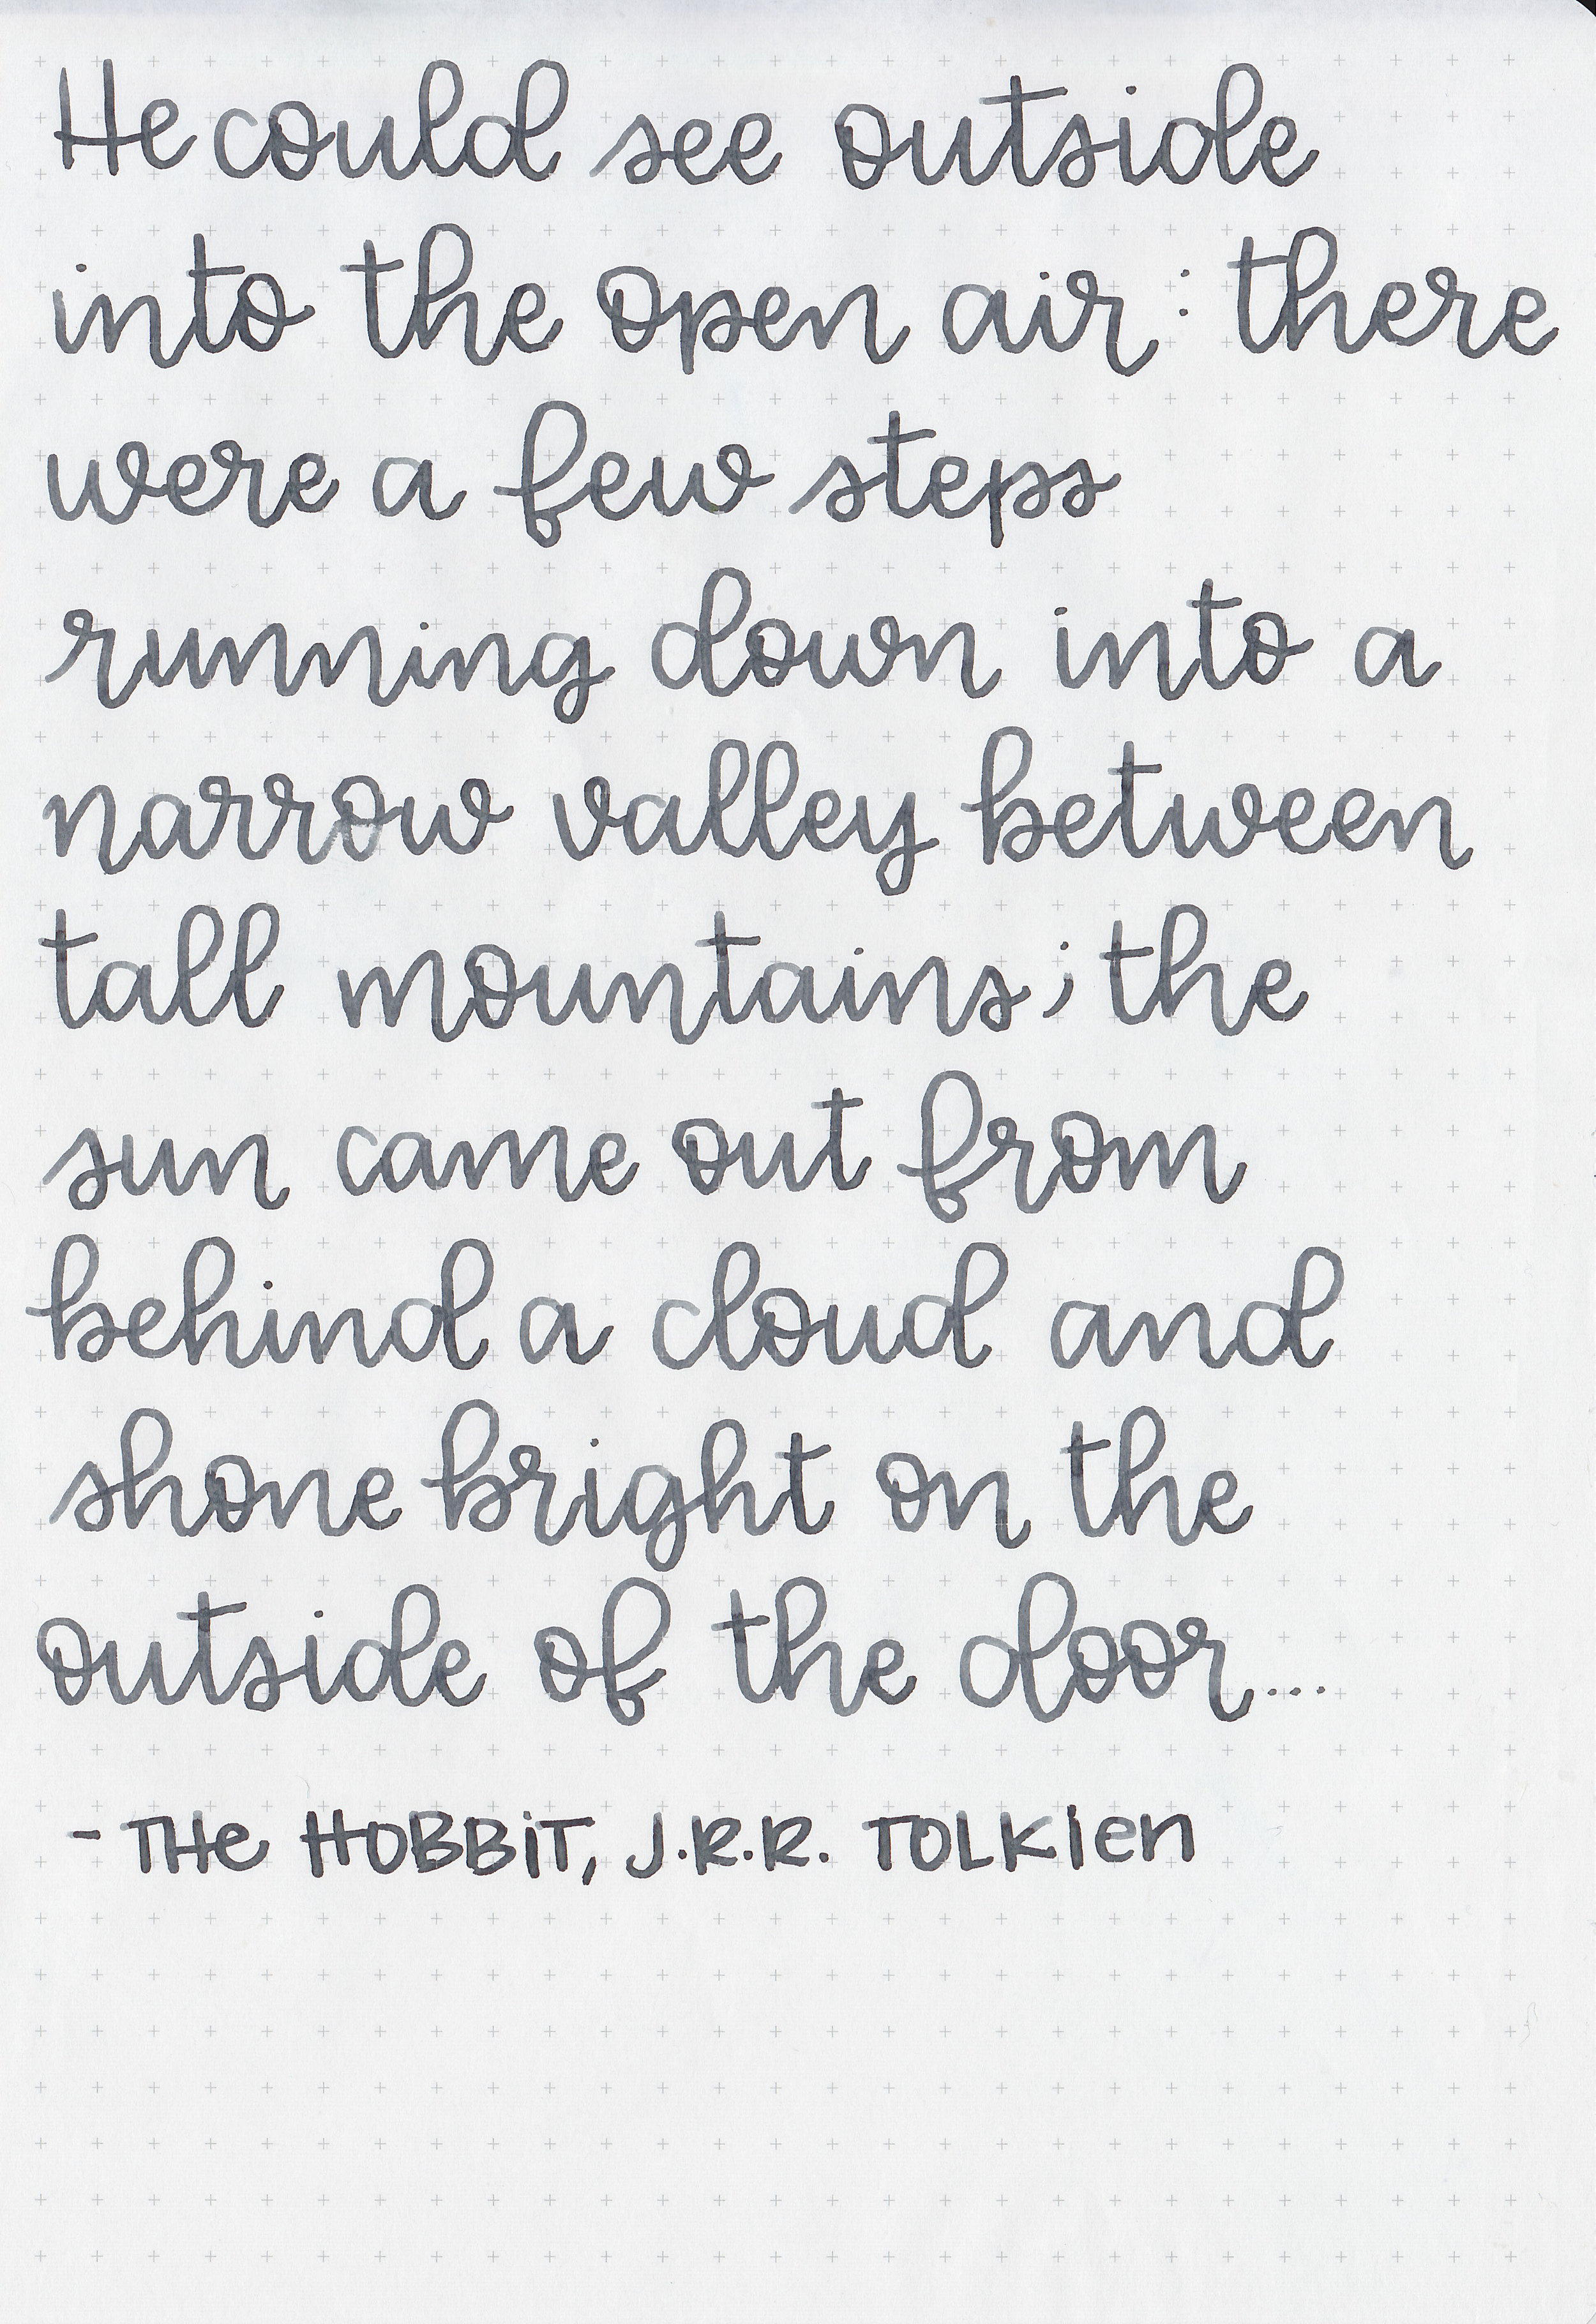 He could see outside
into the open air: there
were a few steps
running down into a
narrow valley between
tall mountains; the
sun came out from
behind a cloud and
shone bright on the
outside of the door...
- THe HOBBiT, J.R.R. TOLKien